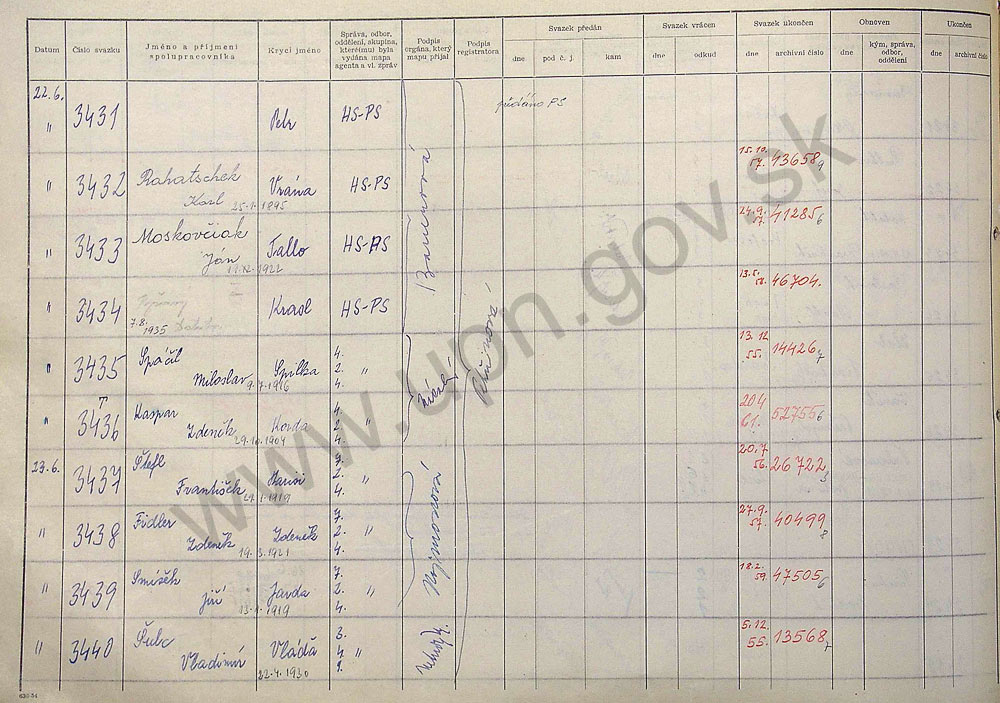 Datum
Číslo svazku
Jméno a příjmení
spolupracovníka
Krycí jméno
Správa, odbor,
oddělení, skupina,
kterému byla
vydána mapa
agenta a vl. zpráv
Podpis
orgána, který
mapu přijal
Podpis
registrátora
Svazek předán
dne
pod č. j.
kam
Svazek vrácen
dne
odkud
Svazek ukončen
dne
archivní číslo
Obnoven
dne
kým, správa,
odbor,
oddělení
Ukončen
dne
archivní číslo
22.6.
" 3431 Petr HS-PS předáno PS
" 3432 Rahatschek Vrána HS-PS 15.10. 43658
Karl 25.1.1895 57.
" 3433 Moskovčiak Tallo HS-PS 24.9. 41285 6
Ján 11.12.1922 57.
" 3434 Krasl HS-PS 13.5. 46704.
7.8.1935 58.
" 3435 Spáčil Spilka 4. 2. 4. " 13.12 14426 7
Miloslav 9.7.1916 55.
" 3436 Kaspar Korda 4. 2. 4. " 20.4 52755 6
Zdeněk 29.10.1904 61.
23.6. 3437 Štefl 7. 2. 4. " 20.7 26722
František 1919 56.
" 3438 Fidler Zdeněk 7. 2. 4. " 27.9. 40499 8
Zdeněk 19.3.1921 57.
" 3439 Smíšek Javda 7. 2. 4. " 18.2. 47505 6
Jiří 13.1.1919 59.
" 3440 Šulc Vláďa 3. 4. 9. " 5.12. 13568 7
Vladimír 22.4.1930 55.
www.upn.gov.sk